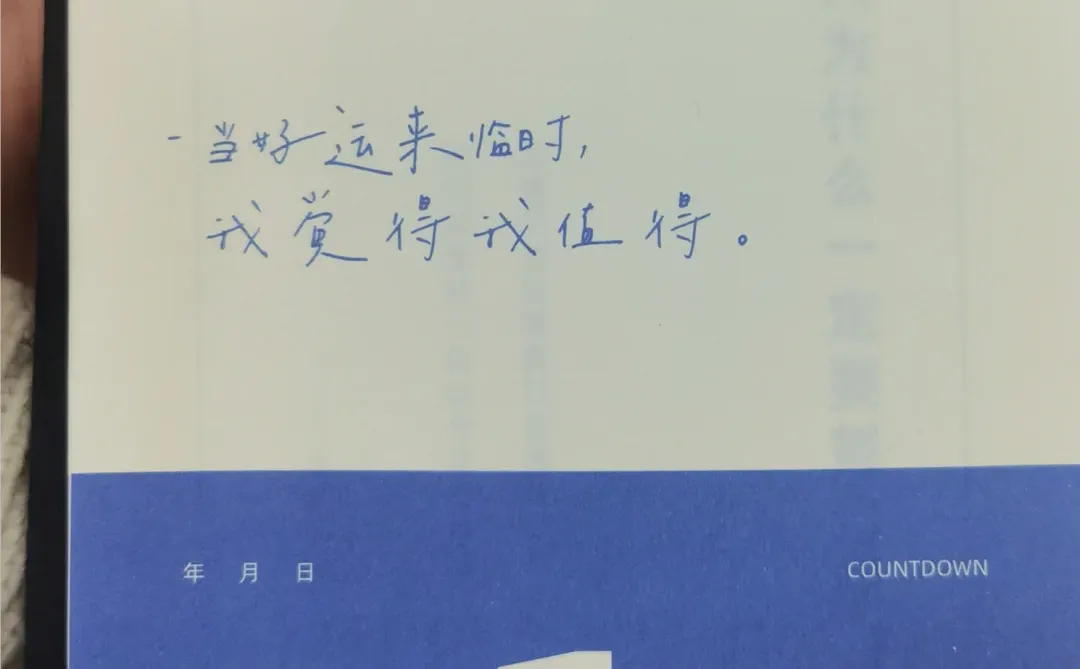 - 当好运来临时,
我觉得我值得。
年 月 日
COUNTDOWN